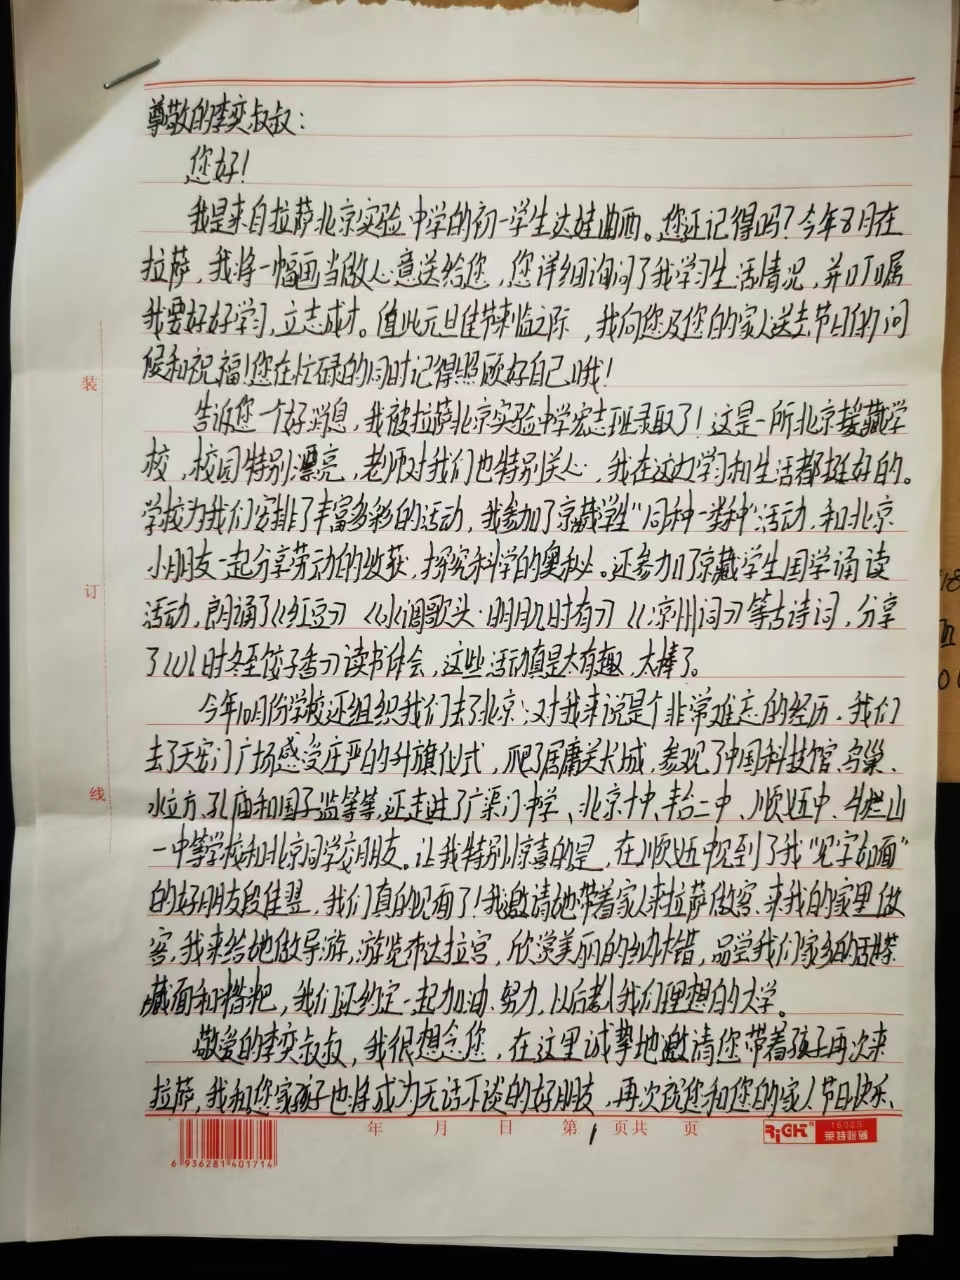 尊敬的李奕叔叔：
您好！
我是来自拉萨北京实验中学的初一学生达娃曲西。您还记得吗？今年8月在
拉萨，我将一幅画当做心意送给您，您详细询问了我学习生活情况，并叮嘱
我要好好学习，立志成才。值此元旦佳节来临之际，我向您及您的家人送去节日的问
候和祝福！您在忙碌的同时记得照顾好自己哦！
告诉您一个好消息，我被拉萨北京实验中学宏志班录取了！这是一所北京援藏学
校，校园特别漂亮，老师对我们也特别关心，我在这边学习和生活都挺好的。
学校为我们安排了丰富多彩的活动，我参加了京藏学生“同种一类种”活动，和北京
小朋友一起分享劳动的收获，探究科学的奥秘。还参加了京藏学生国学诵读
活动，朗诵了《红豆》《水调歌头·明月几时有》《凉州词》等古诗词，分享
了《儿时冬至饺子香》读书体会，这些活动真是太有趣，太棒了。
今年10月份学校还组织我们去了北京，对我来说是个非常难忘的经历，我们
去了天安门广场感受庄严的升旗仪式，爬了居庸关长城，参观了中国科技馆、鸟巢、
水立方、孔庙和国子监等等，还走进了广渠门中学、北京十中、丰台二中、顺义五中、牛栏山
一中等学校和北京同学交朋友。让我特别惊喜的是，在顺义五中见到了我“见字如面”
的好朋友段佳翌，我们真的见面了！我邀请她带着家人来拉萨做客、来我的家里做
客，我来给她做导游，游览布达拉宫，欣赏美丽的纳木错，品尝我们家乡的甜茶
藏面和糌粑，我们还约定一起加油、努力，以后考入我们理想的大学。
敬爱的李奕叔叔，我很想念您，在这里诚挚地邀请您带着孩子再次来
拉萨，我和您家孩子也将成为无话不谈的好朋友，再次祝您和您的家人节日快乐、
装
订
线
年 月 日 第 1 页共 页
RiGH
1602S
莱特账簿
6 936281 401714